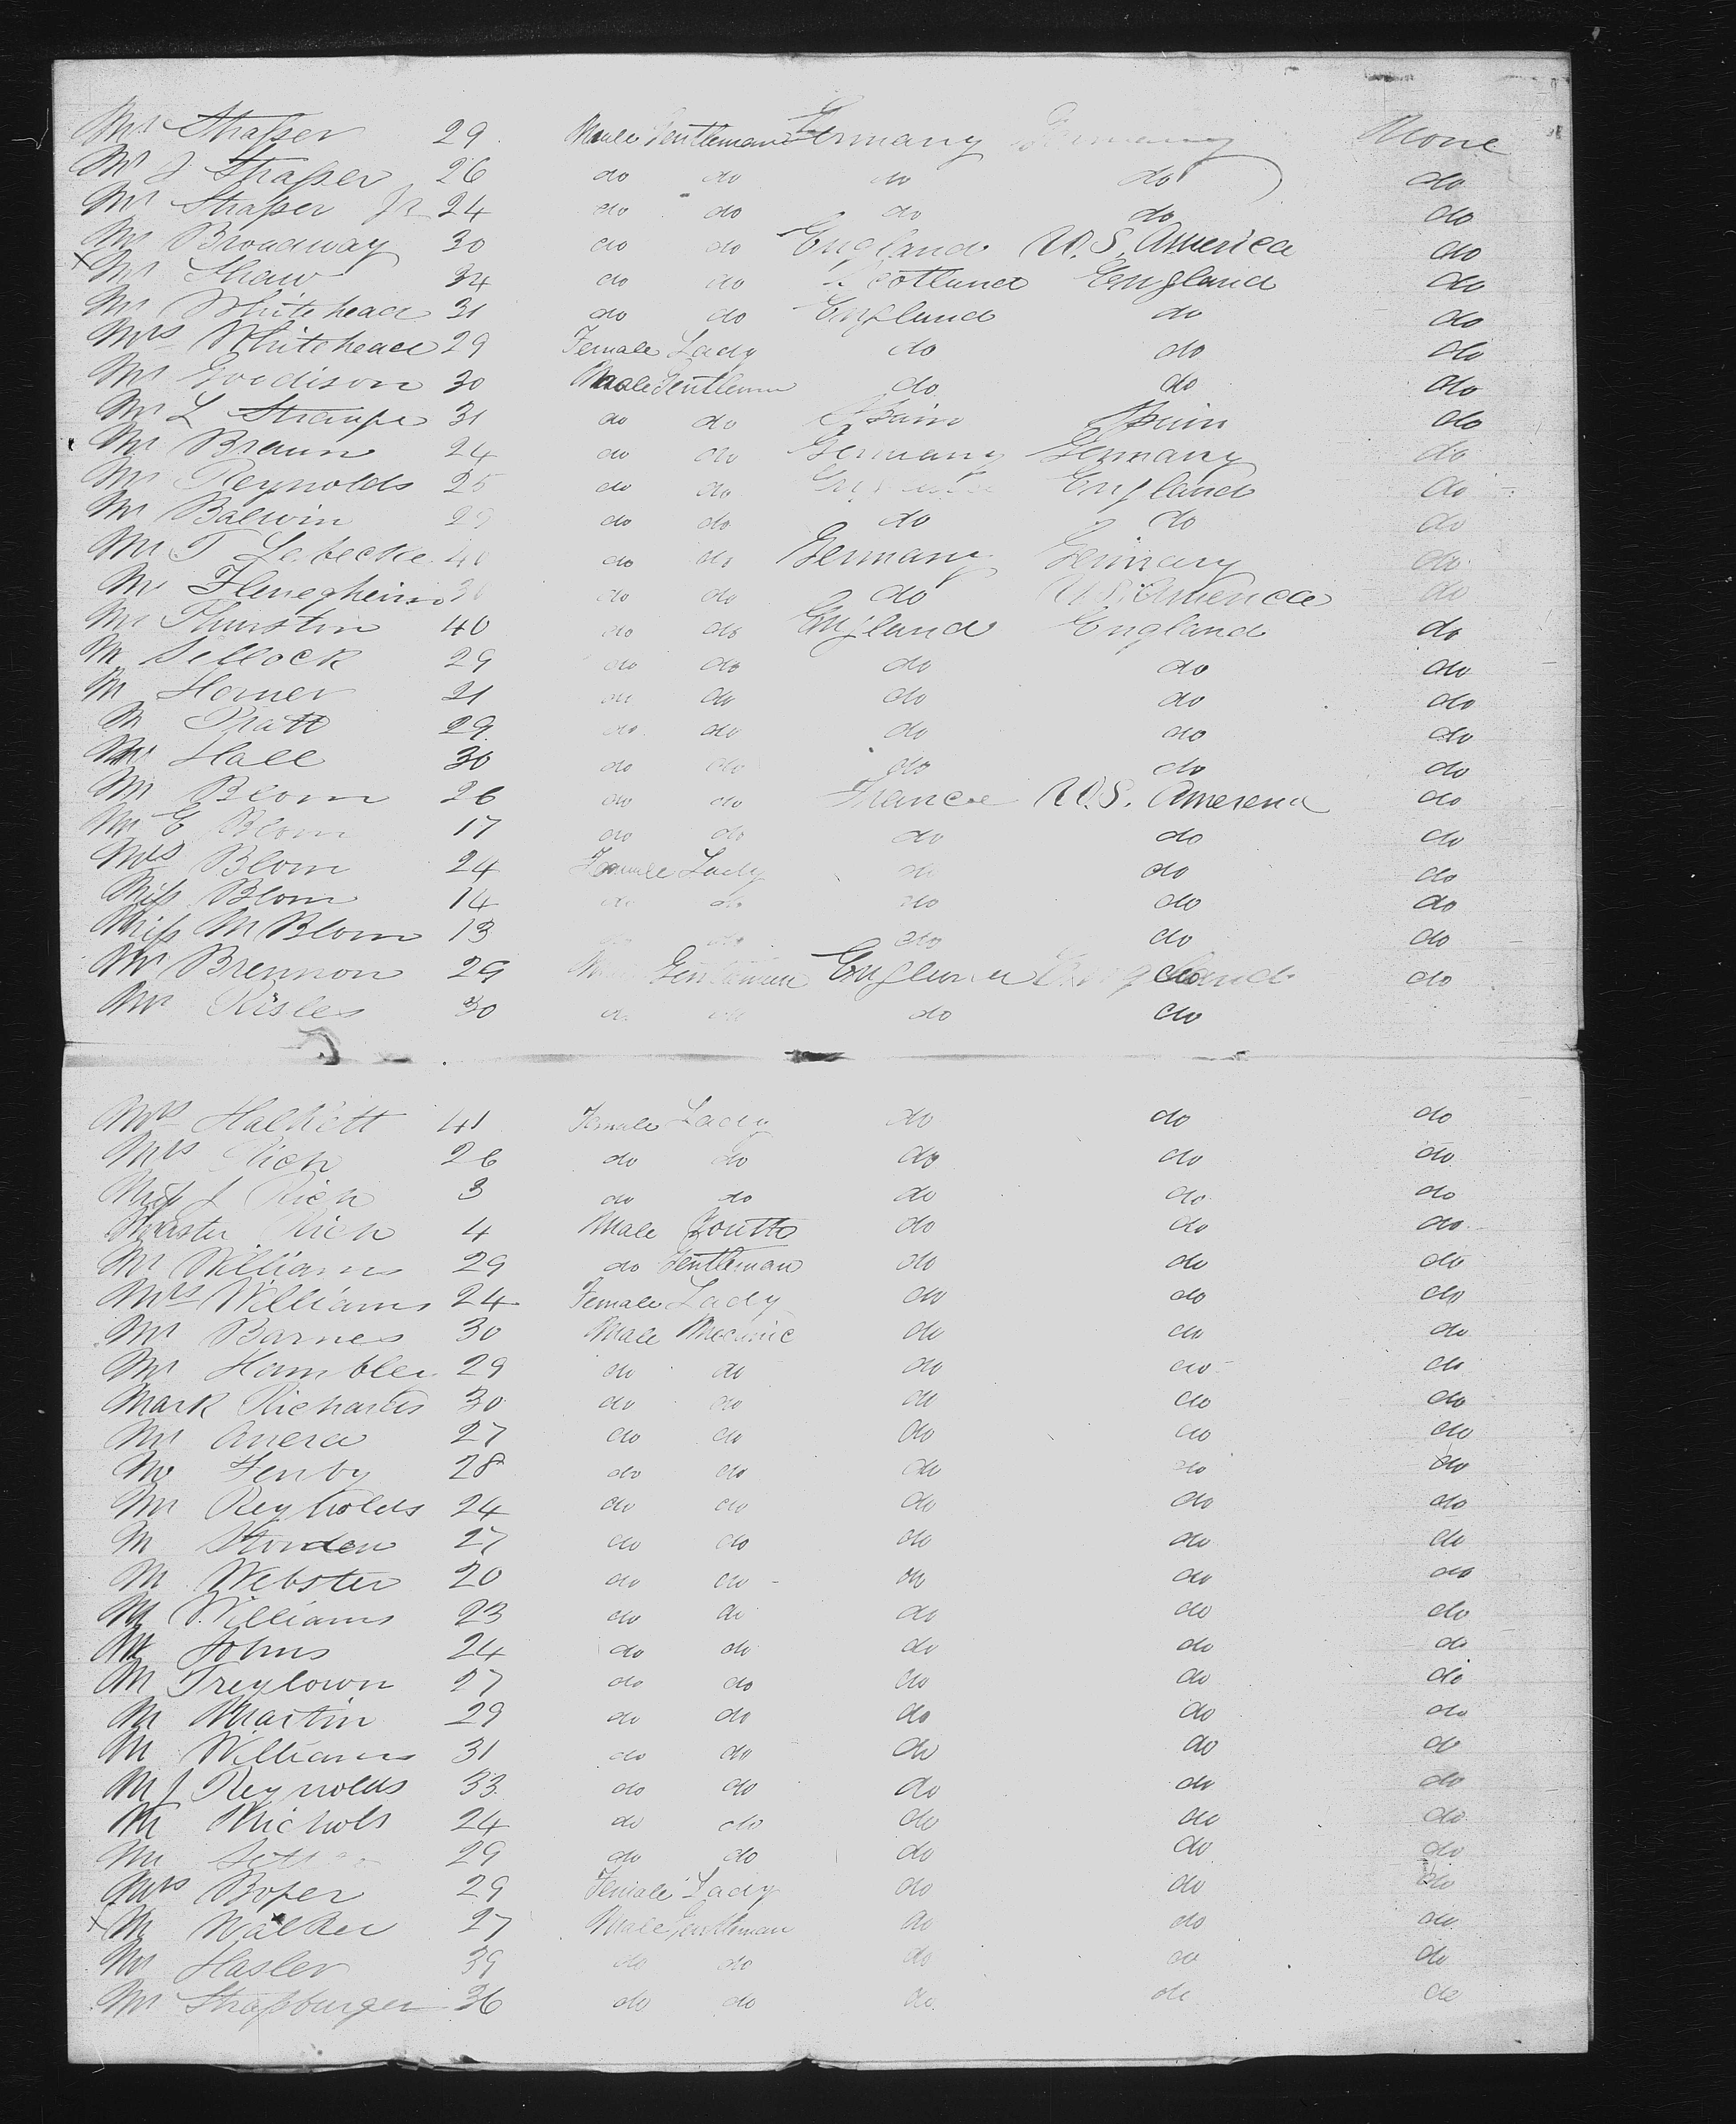 Mr Straſser 29 Male Gentleman Germany Germany None
Mr J Straſser 26 do do do do do
Mr Straſser Jr 24 do do do do do
Mr Broadway 30 do do England U.S. America do
x Mr Shaw 34 do do Scotland England do
Mr Whitehead 31 do do England do do
Mrs Whitehead 29 Female Lady do do do
Mr Goodison 30 Male Gentleman do do do
Mr L 31 do do Spain Spain do
Mr Braun 24 do do Germany Germany do
Mr Reynolds 25 do do England do
Mr Balwin 29 do do do do do
Mr T 40 do do Germany Germany do
Mr do do do U.S. America do
Mr Thurstin 40 do do England England do
Mr Sellock 29 do do do do do
M Horner 21 do do do do do
M Pratt 29 do do do do do
Mr Hall 30 do do do do do
Mr Blom 26 do do France U.S. America do
Mr E Blom 17 do do do do do
Mrs Blom 24 Female Lady do do do
Miſs Blom 14 do do do do do
Miſs M Blom 13 do do do do do
Mr Brennon 29 Male Gentleman England England do
Mr Risles 30 do do do do
Mrs 41 Female Lady do do do
Mrs Rich 26 do do do do do
Miſs J Rich 3 do do do do do
Master Rich 4 Male Youth do do do
Mr Williams 29 do Gentleman do do do
Mrs Williams 24 Female Lady do do do
Mr Barnes 30 Male Mecanic do do do
Mr 29 do do do do do
Mark Richards 30 do do do do do
Mr 27 do do do do do
Mr Fenby 28 do do do do do
Mr Reynolds 24 do do do do do
M 27 do do do do do
M Webster 20 do do do do do
M Williams 23 do do do do do
M Johns 24 do do do do do
M Treylown 27 do do do do do
M Martin 29 do do do do do
M Williams 31 do do do do do
M J Reynolds 33 do do do do do
M Nichols 24 do do do do do
Mr 29 do do do do do
Mrs 29 Female Lady do do do
x M Walker 27 Male Gentleman do do do
Mr Hasler 39 do do do do do
Mr Straſsburger 36 do do do do do